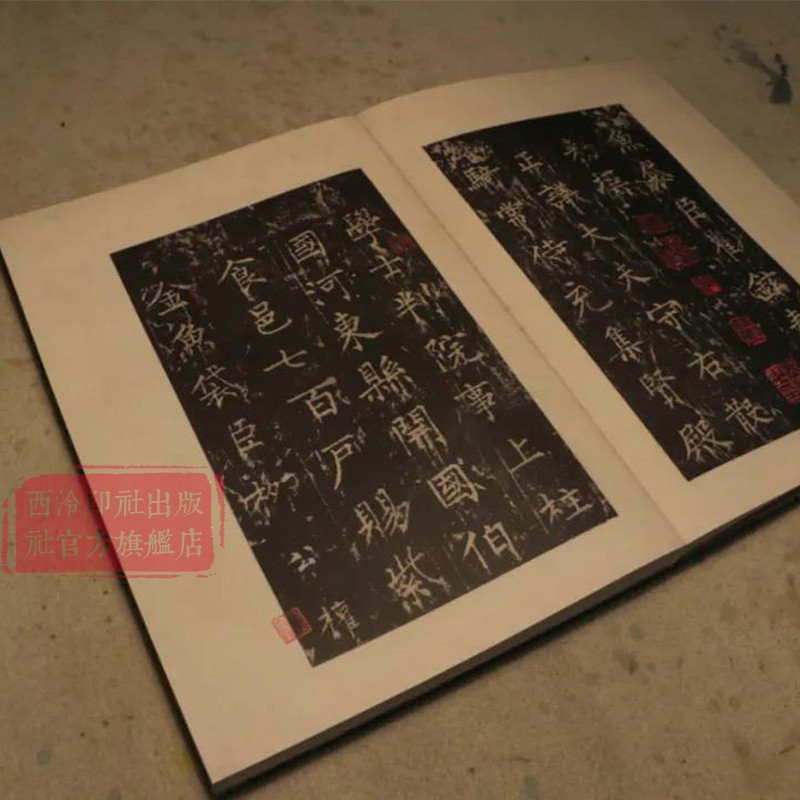 魚袋臣崔鉉奉
勑撰
正議大夫守右散
騎常侍充集賢殿
學士判院事上柱
國河東縣開國伯
食邑七百戶賜紫
金魚袋臣柳公權
西泠印社出版
社官方旗艦店